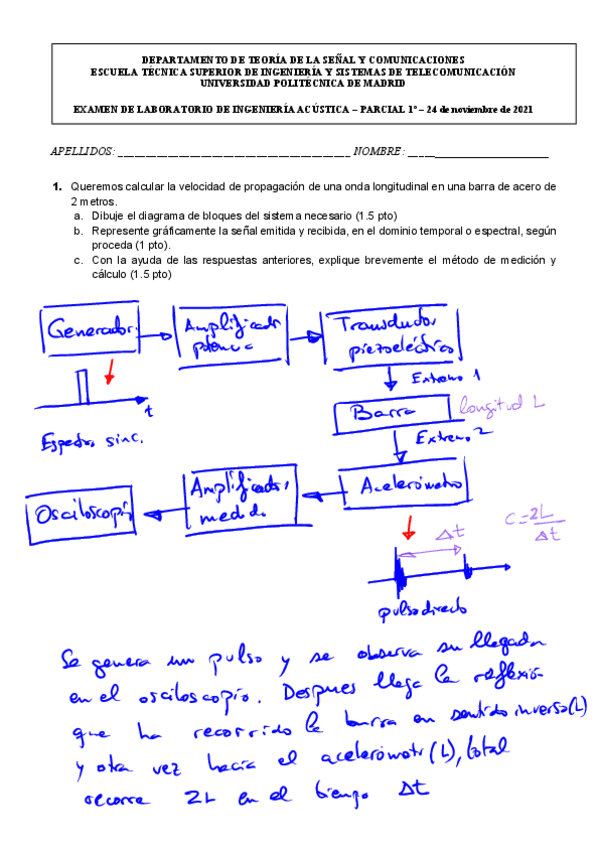 DEPARTAMENTO DE TEORÍA DE LA SEÑAL Y COMUNICACIONES
ESCUELA TÉCNICA SUPERIOR DE INGENIERÍA Y SISTEMAS DE TELECOMUNICACIÓN
UNIVERSIDAD POLITÉCNICA DE MADRID
EXAMEN DE LABORATORIO DE INGENIERÍA ACÚSTICA – PARCIAL 1º – 24 de noviembre de 2021
APELLIDOS: NOMBRE:
1. Queremos calcular la velocidad de propagación de una onda longitudinal en una barra de acero de
2 metros.
a. Dibuje el diagrama de bloques del sistema necesario (1.5 pto)
b. Represente gráficamente la señal emitida y recibida, en el dominio temporal o espectral, según
proceda (1 pto).
c. Con la ayuda de las respuestas anteriores, explique brevemente el método de medición y
cálculo (1.5 pto)
Generador
Amplificador
potencia
Transductor
piezoeléctrico
Extremo 1
t
Barra
longitud L
Espectro sinc.
Extremo 2
Osciloscopio
Amplificador
medida
Acelerómetro
Δt
C = 2L
Δt
pulso directo
Se genera un pulso y se observa su llegada
en el osciloscopio. Despues llega la reflexión
que ha recorrido la barra en sentido inverso (L)
y otra vez hacia el acelerómetr (L), total
recorre 2L en el tiempo Δt